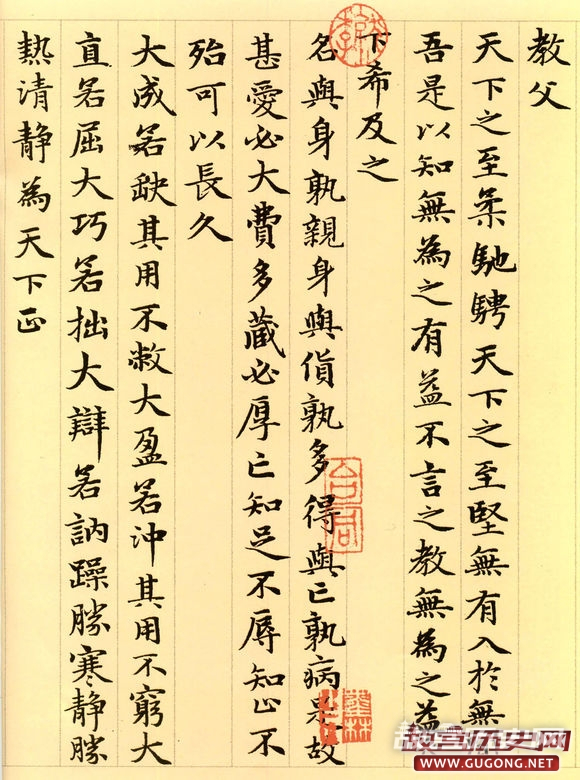 教父
天下之至柔馳騁天下之至堅無有入於無
吾是以知無為之有益不言之教無為之益
下希及之
名與身孰親身與貨孰多得與亡孰病是故
甚愛必大費多藏必厚亡知足不辱知止不
殆可以長久
大成若缺其用不敝大盈若沖其用不窮大
直若屈大巧若拙大辯若訥躁勝寒靜勝
熱清靜為天下正
故宫历史网
WWW.GUGONG.NET